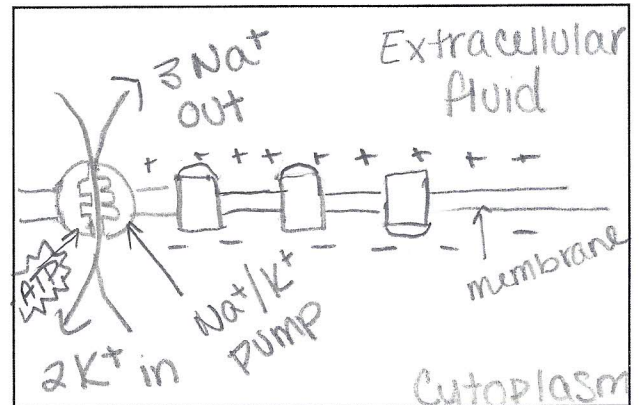 3 Na+
out
Extracellular
fluid
ATP
Na+/K+
pump
membrane
2K+ in
Cytoplasm